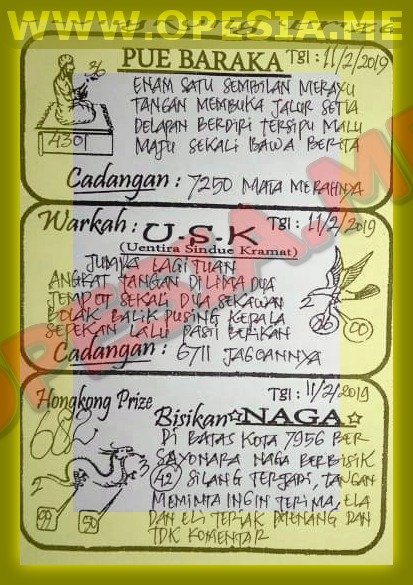 WWW.OPESIA.ME
PUE BARAKA
Tgl : 11/2/2019
36
4301
ENAM SATU SEMBILAN MERAYU
TANGAN MEMBUKA JALUR SETIA
DELAPAN BERDIRI TERSIPU MALU
MAJU SEKALI BAWA BERITA
Cadangan : 7250 MATA MERAHNYA
Warkah : U-S-K
Tgl : 11/2/2019
(Uentira Sindue Kramat)
JUMPA LAGI TUAN
ANGKAT TANGAN DI LIMA DUA
JEMPOT SEKALI DUA SEKAWAN
BOLAK BALIK PUSING KEPALA
SEPEKAN LALU PASTI BERIKAN
Cadangan : 6711 JAGOANNYA
2
00
OPESIA.ME
Hongkong Prize
Tgl : 11/2/2019
Bisikan ☆NAGA☆
68
2
3
99
50
DI BATAS KOTA 7956 BER
SAYONARA NAGA BERBISIK
42 SILANG TERJADI, TANGAN
MEMINTA INGIN TERIMA, ELA
DAN ELI TERIAK DITENANG DAN
TDK KOMENTAR
WWW.OPESIA.ME